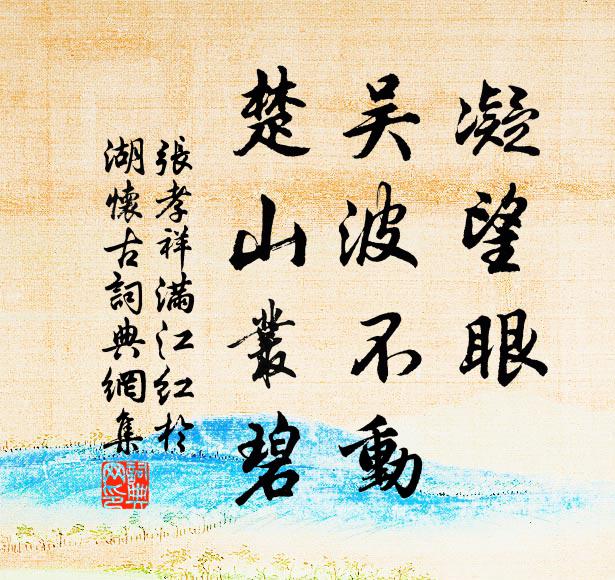 凝望眼
吴波不動
楚山叢碧
張孝祥滿江紅於
湖懷古詞典網集